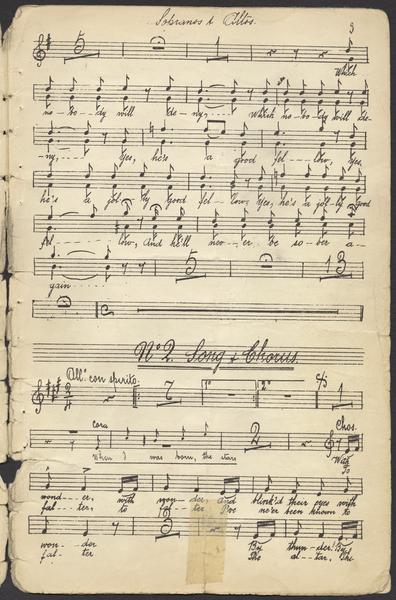 Sopranos & Altos.
3
5 1
Which
no - bo - dy will de - ny, - - - - Which no - bo - dy will de -
- ny, - - - - Yes, he's a good fel - - low, Yes,
he's a jol - ly good fel - - low, Yes, he's a jol - ly good
fel - - - - low, And he'll nev - - er be so - ber a -
gain - - - - 5 13
No 2. Song & Chorus.
All° con spirito.
2 4 7 1° 2° 1
Cora Chos.
When I was born, the stars 2 7 With
To
wond - - er, with won - der, and blink'd their eyes with
fal - - ter, to fal - - ter I've ne'er been known to
3
won - - der By thun - - der! By
fal - - ter The al - - tar, The